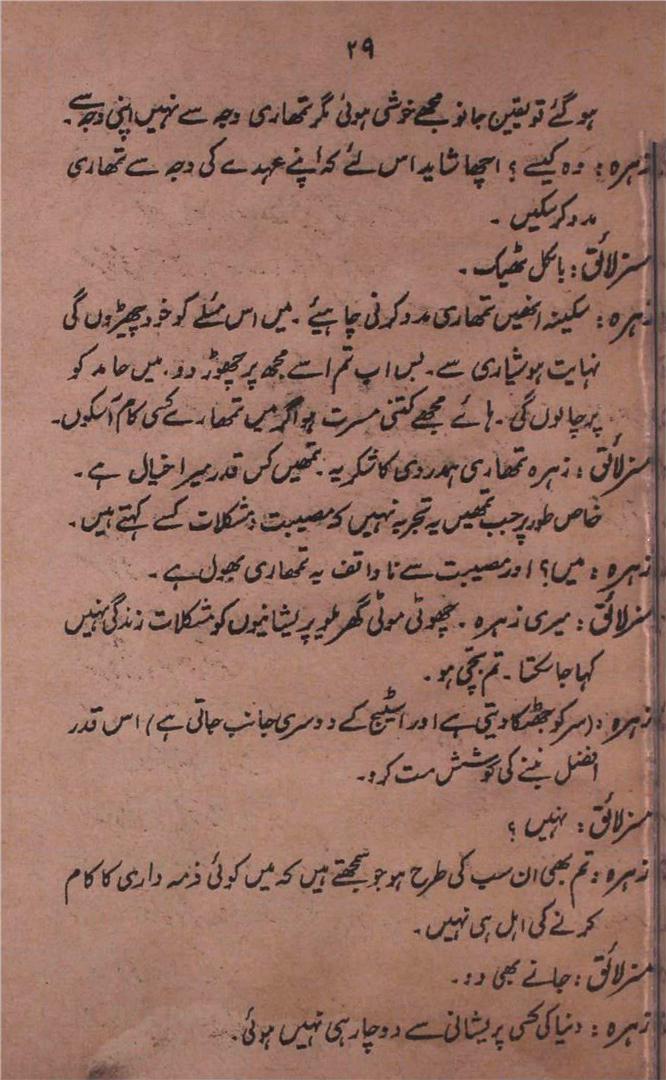 ۲۹
ہو گئے تو یقین جانو مجھے خوشی ہوئی مگر تمھاری وجہ سے نہیں اپنی وجہ سے۔
زہرہ : وہ کیسے ؟ اچھا شاید اس لئے کہ اپنے عہدے کی وجہ سے تمھاری
مدد کر سکیں ۔
مسز لائق : بالکل ٹھیک ۔
زہرہ : سکینہ انھیں تمھاری مدد کرنی چاہیئے ۔ میں اس مسئلے کو خود چھیڑوں گی
نہایت ہوشیاری سے ۔ بس اب تم اسے مجھ پر چھوڑ دو ۔ میں حامد کو
پرچا لوں گی ۔ ہائے مجھے کتنی مسرت ہو اگر میں تمھارے کسی کام آسکوں۔
مسز لائق : زہرہ تمھاری ہمدردی کا شکریہ ۔ تمھیں کس قدر میرا خیال ہے ۔
خاص طور پر جب تمھیں یہ تجربہ نہیں کہ مصیبت و مشکلات کسے کہتے ہیں ۔
زہرہ : میں ؟ اور مصیبت سے ناواقف یہ تمھاری بھول ہے ۔
مسز لائق : میری زہرہ ۔ چھوٹی موٹی گھریلو پریشانیوں کو مشکلات زندگی نہیں
کہا جا سکتا ۔ تم بچی ہو ۔
زہرہ : (سر کو جھٹکا دیتی ہے اور اسٹیج کے دوسری جانب جاتی ہے) اس قدر
افضل بننے کی کوشش مت کرو۔
مسز لائق : نہیں ؟
زہرہ : تم بھی ان سب کی طرح ہو جو سمجھتے ہیں کہ میں کوئی ذمہ داری کا کام
کرنے کی اہل ہی نہیں ۔
مسز لائق : جانے بھی دو ۔
زہرہ : دنیا کی کسی پریشانی سے دوچار ہی نہیں ہوئی ۔